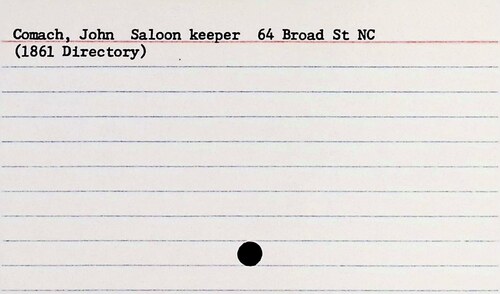 Comach, John  Saloon keeper  64 Broad St NC
(1861 Directory)